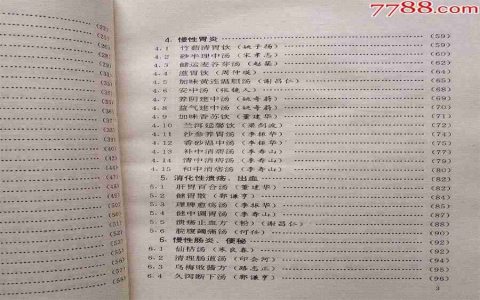 7788.com
(22)
(23)
(25)
(26)
(28)
(29)
(31)
(33)
(36)
(38)
(40)
(41)
(42)
(44)
(45)
(47)
(48)
(50)
(51)
(52)
(54)
(56)
4. 慢性胃炎 (59)
4.1 竹茹清胃饮(姚子扬) (59)
4.2 砂半理中汤(宋孝志) (60)
4.3 健运麦谷芽汤(赵棻) (62)
4.4 滋胃饮(周仲瑛) (64)
4.5 加味黄连温胆汤(谢昌仁) (65)
4.6 安中汤(张镜人) (67)
4.7 养阴建中汤(姚奇蔚) (68)
4.8 益气建中汤(姚奇蔚) (70)
4.9 加味香苏饮(董建华) (71)
4.10 兰洱延馨饮(梁剑波) (72)
4.11 沙参养胃汤(李振华) (74)
4.12 香砂温中汤(李振华) (75)
4.13 补中消痞汤(李寿山) (77)
4.14 清中消痞汤(李寿山) (78)
4.15 和中消痞汤(李寿山) (80)
5. 消化性溃疡、出血 (82)
5.1 肝胃百合汤(董建华) (82)
5.2 健胃散(郭谦亨) (83)
5.3 理脾愈疡汤(李振华) (84)
5.4 健中调胃汤(李寿山) (86)
5.5 溃疡止血方(粉)(谢昌仁) (88)
5.6 脘腹蠲痛汤(何任) (90)
6. 慢性肠炎、便秘 (92)
6.1 仙桔汤(朱良春) (92)
6.2 清理肠道汤(印会河) (94)
6.3 乌梅败酱方(路志正) (95)
6.4 久泻断下汤(郭谦亨) (96)
3